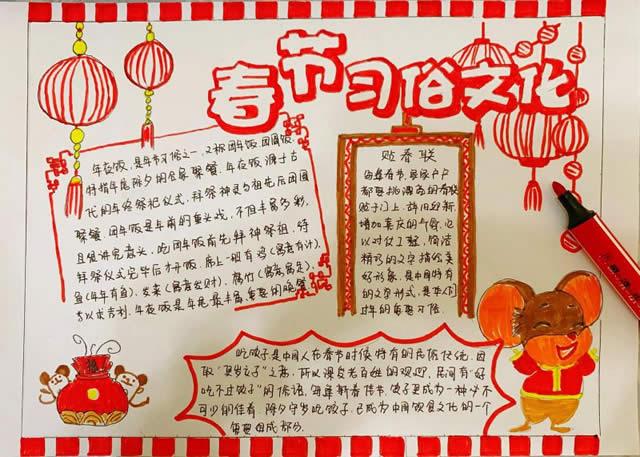 春节习俗文化
年夜饭,是年节习俗之一,又称团年饭、团圆饭,
特指年尾除夕的合家聚餐。年夜饭源于古
代的年终祭祀仪式,拜祭神灵与祖先后团圆
聚餐。团年饭是年前的重头戏,不但丰富多彩,
且很讲究意头。吃团年饭前先拜神祭祖,待
拜祭仪式完毕后才开饭。席上一般有鸡(寓意有计)、
鱼(年年有鱼)、发菜(寓意发财)、腐竹(寓意富足)、
等以求吉利。年夜饭是年尾最丰盛、重要的晚餐
贴春联
每逢春节,家家户户
都要挑漂亮的春联
贴于门上,辞旧迎新,
增加喜庆的气氛,它
以对仗工整、简洁
精巧的文字描绘美
好形象,是中国特有
的文字形式,是本们
过年的重要习俗
吃饺子是中国人在春节时候特有的民俗传统。因
取"更岁交子"之意,所以深受老百姓的欢迎,民间有"好
吃不过饺子"的俗语。每年新春佳节,饺子更成为一种必不
可少的佳肴。除夕守岁吃饺子,已成为中国饮食文化的一个
重要组成部分。